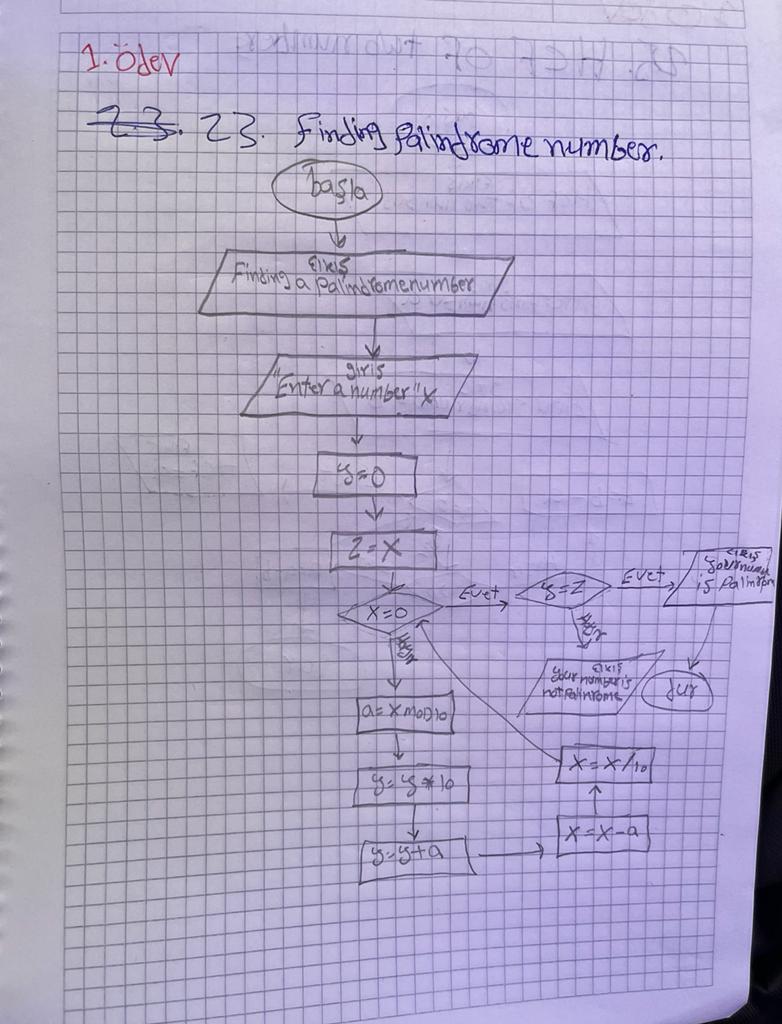 1. Ödev
23. 23. Finding Palindrome number.
başla
çıkış
Finding a Palindrome number
giriş
"Enter a number" x
y=0
Z=X
x=0
Evet
y=Z
Evet
çıkış
your numbe
is Palinrom
Hayır
Hayır
çıkış
your number is
not Palinrome
dur
a=x MOD 10
y=y*10
y=y+a
x=x-a
x=x/10